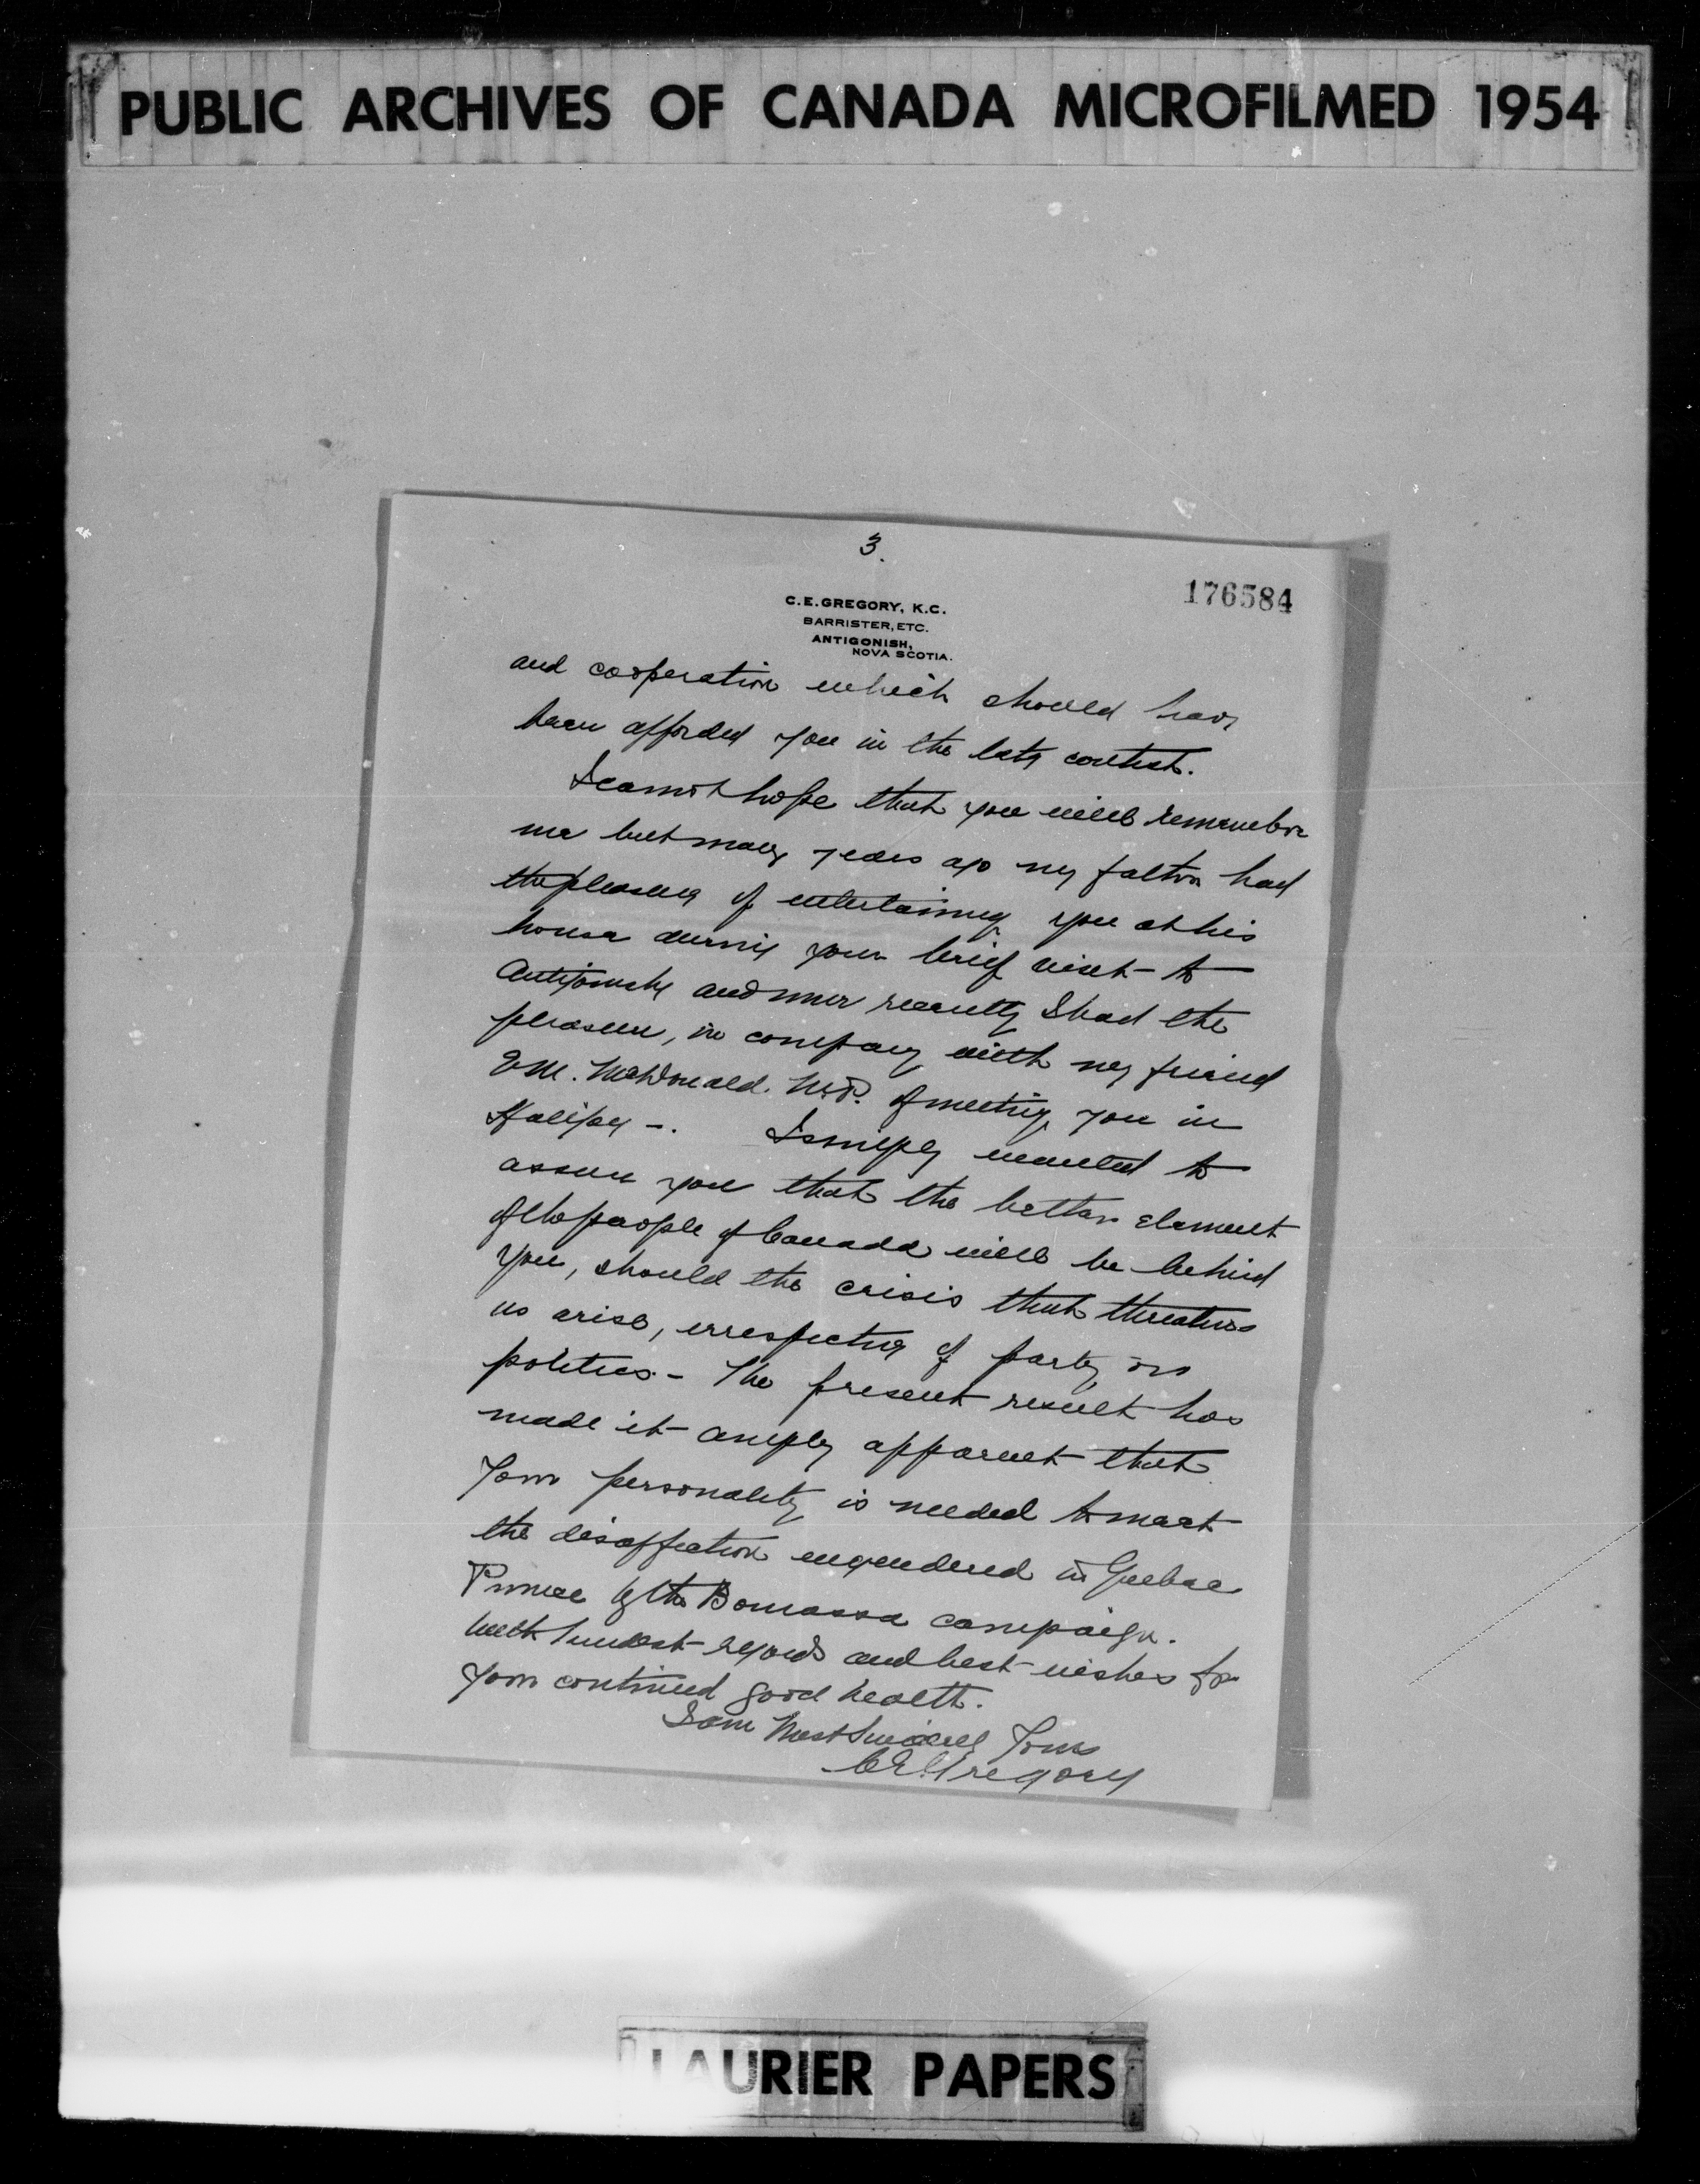 PUBLIC ARCHIVES OF CANADA MICROFILMED 1954
3.
176584
C. E. GREGORY, K.C.
BARRISTER, ETC.
ANTIGONISH,
NOVA SCOTIA.
and cooperation which should have
been afforded you in the late contest.
I cannot hope that you will remember
me but many years ago my father had
the pleasure of entertaining you at his
house during your brief visit to
Antigonish and more recently I had the
pleasure, in company with my friend
E.M. McDonald. M.P. of meeting you in
Halifax -. I simply wanted to
assure you that the better element
of the people of Canada will be behind
you, should the crisis that threatens
us arise, irrespective of party or
politics. - The present result has
made it amply apparent that
your personality is needed to meet
the disaffection engendered in Quebec
Province by the Bourassa campaign.
With kindest regards and best wishes for
your continued good health.
I am Most Sincerely Yours
C.E. Gregory
LAURIER PAPERS